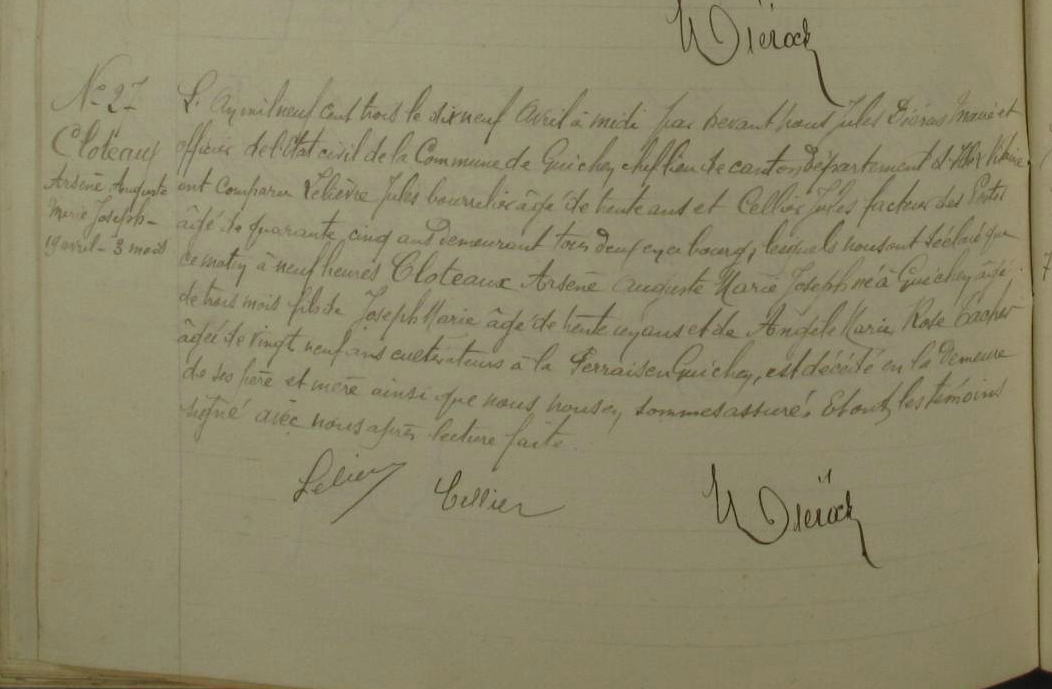 Diéroch
N° 27
Cloteaux
Arsène Auguste
Marie Joseph -
19 avril - 3 mois
L'an mil neuf cent trois le dix neuf Avril à midi par devant nous Jules Maire et
officier de l'état civil de la Commune de Guichen chef lieu de canton département d'Ille Vilaine
ont comparu Lelièvre Jules bourrelier âgé de trente ans et Cellier Jules facteur des Postes
âgé de quarante cinq ans demeurant tous deux en ce bourg, lesquels nous ont déclaré que
ce matin à neuf heures Cloteaux Arsène Auguste Marie Joseph né à Guichen âgé
de trois mois fils de Joseph Marie âgé de trente un ans et de Angèle Marie Rose
âgée de vingt neuf ans cultivateurs à la en Guichen, est décédé en la demeure
de ses père et mère ainsi que nous nous en sommes assuré. Et ont les témoins
signé avec nous après lecture faite.
Cellier
Diéroch